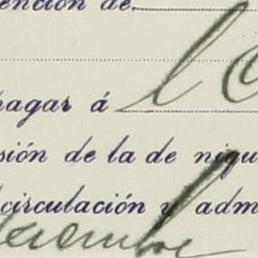 ención de
pagar á l
sión de la de níqu
circulación y adm